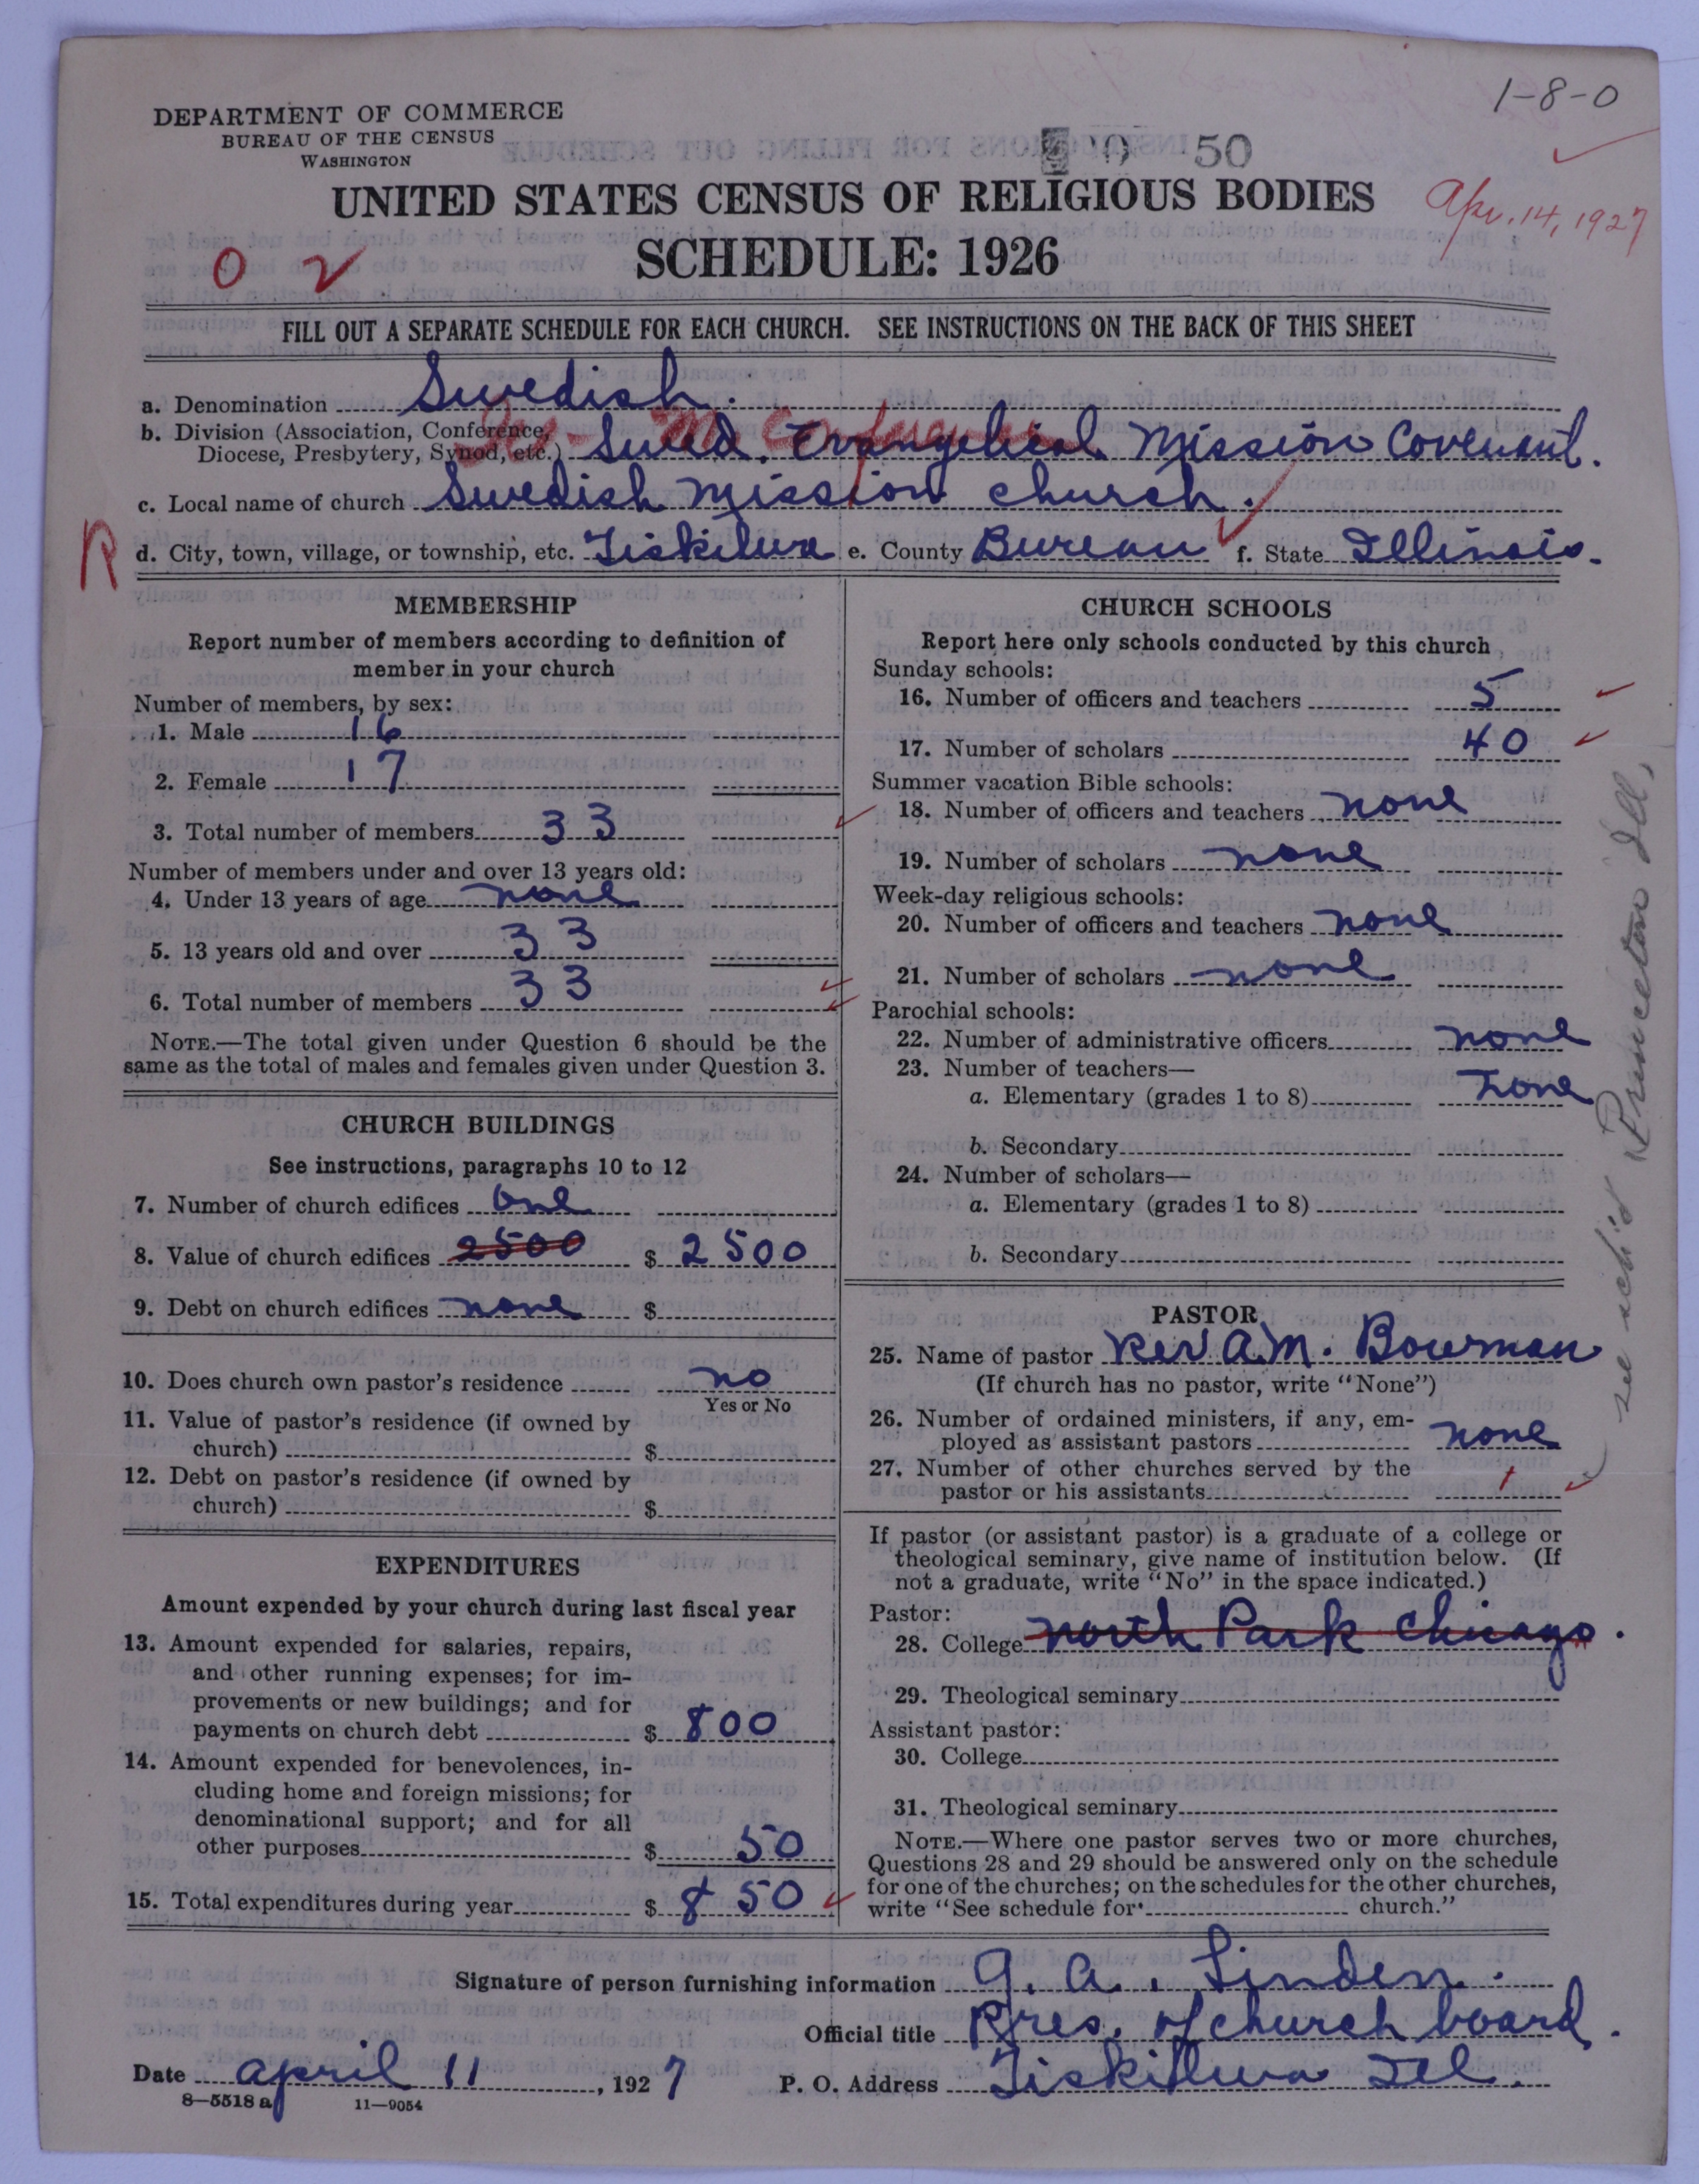 1-8-0
DEPARTMENT OF COMMERCE
BUREAU OF THE CENSUS
WASHINGTON
50
UNITED STATES CENSUS OF RELIGIOUS BODIES
Apr. 14, 1927
SCHEDULE: 1926
FILL OUT A SEPARATE SCHEDULE FOR EACH CHURCH. SEE INSTRUCTIONS ON THE BACK OF THIS SHEET
a. Denomination Swedish.
b. Division (Association, Conference,
Diocese, Presbytery, Synod, etc.) Swed. Evangelical Mission Covenant.
c. Local name of church Swedish Mission church.
R
d. City, town, village, or township, etc. Tiskilwa e. County Bureau f. State Illinois.
MEMBERSHIP
Report number of members according to definition of
member in your church
Number of members, by sex:
1. Male 16
2. Female 17
3. Total number of members 33
Number of members under and over 13 years old:
4. Under 13 years of age none
5. 13 years old and over 33
6. Total number of members 33
NOTE.—The total given under Question 6 should be the
same as the total of males and females given under Question 3.
CHURCH BUILDINGS
See instructions, paragraphs 10 to 12
7. Number of church edifices one
8. Value of church edifices 2500 $ 2500
9. Debt on church edifices none $
10. Does church own pastor's residence no
Yes or No
11. Value of pastor's residence (if owned by
church) $
12. Debt on pastor's residence (if owned by
church) $
EXPENDITURES
Amount expended by your church during last fiscal year
13. Amount expended for salaries, repairs,
and other running expenses; for im-
provements or new buildings; and for
payments on church debt $ 800
14. Amount expended for benevolences, in-
cluding home and foreign missions; for
denominational support; and for all
other purposes $ 50
15. Total expenditures during year $ 850
CHURCH SCHOOLS
Report here only schools conducted by this church
Sunday schools:
16. Number of officers and teachers 5
17. Number of scholars 40
Summer vacation Bible schools:
18. Number of officers and teachers none
19. Number of scholars none
Week-day religious schools:
20. Number of officers and teachers none
21. Number of scholars none
Parochial schools:
22. Number of administrative officers none
23. Number of teachers—
a. Elementary (grades 1 to 8) none
b. Secondary
24. Number of scholars—
a. Elementary (grades 1 to 8)
b. Secondary
PASTOR
25. Name of pastor Rev A.M. Bowman
(If church has no pastor, write "None")
26. Number of ordained ministers, if any, em-
ployed as assistant pastors none
27. Number of other churches served by the
pastor or his assistants 1
If pastor (or assistant pastor) is a graduate of a college or
theological seminary, give name of institution below. (If
not a graduate, write "No" in the space indicated.)
Pastor:
28. College North Park Chicago.
29. Theological seminary
Assistant pastor:
30. College
31. Theological seminary
NOTE.—Where one pastor serves two or more churches,
Questions 28 and 29 should be answered only on the schedule
for one of the churches; on the schedules for the other churches,
write "See schedule for church."
see sch'd Princeton Ill.
Signature of person furnishing information G. A. Linden.
Official title Pres. of church board.
Date april 11, 1927 P. O. Address Tiskilwa Ill.
8—5518 a 11—9054